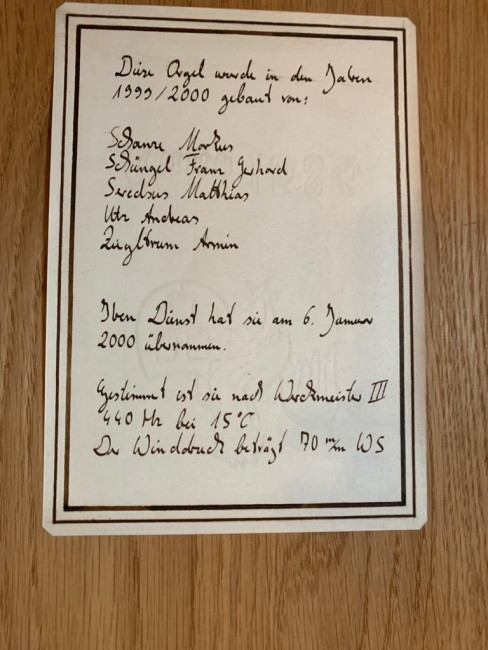 Diese Orgel wurde in den Jahren
1999/2000 gebaut von:
Schanze Markus
Schüngel Franz Gerhard
Matthias
Utz Andreas
Armin
Ihren Dienst hat sie am 6. Januar
2000 übernommen.
Gestimmt ist sie nach Werckmeister III
440 Hz bei 15°C
Der Winddruck beträgt 70 m/m WS